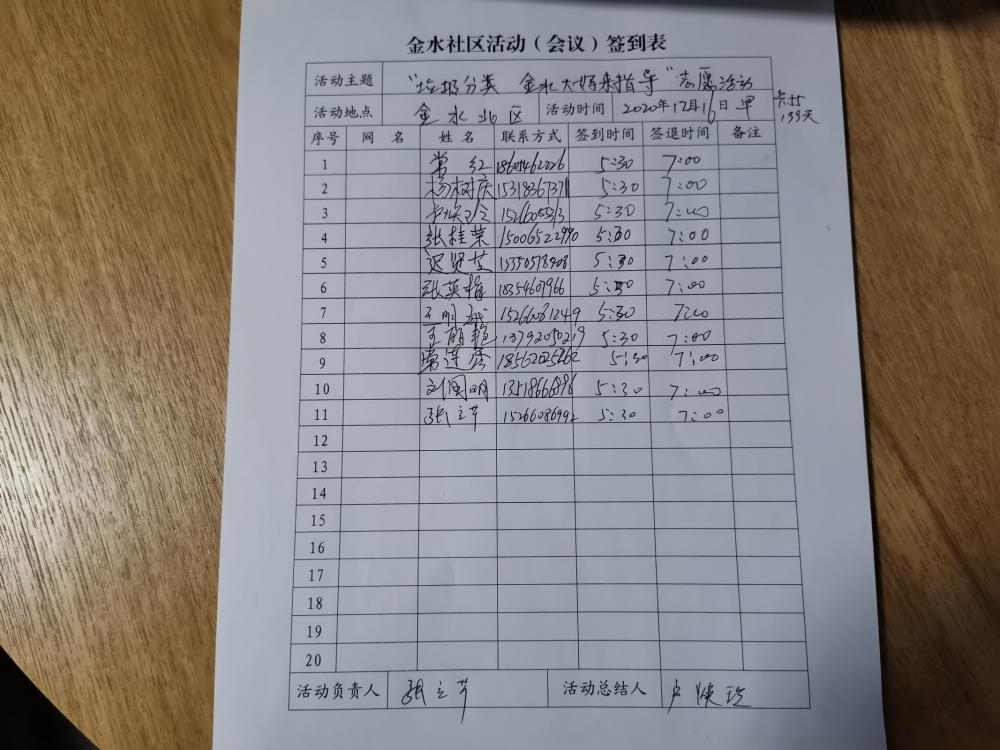 金水社区活动（会议）签到表
活动主题 “垃圾分类 金水大妈来指导”志愿活动
活动地点 金水北区 活动时间 2020年12月16日 早
199天
序号 网名 姓名 联系方式 签到时间 签退时间 备注
1 常红 18605462026 5:30 7:00
2 杨树庆 15318367371 5:30 7:00
3 5:30 7:00
4 张桂荣 15006522990 5:30 7:00
5 迟贤芝 13350578908 5:30 7:00
6 张英梅 18354607966 5:30 7:00
7 15266081249 5:30 7:00
8 王丽艳 13792050219 5:30 7:00
9 常莲 18562025262 5:30 7:00
10 刘国明 13518666896 5:30 7:00
11 张立芹 15266086992 5:30 7:00
12
13
14
15
16
17
18
19
20
活动负责人 张立芹 活动总结人 卢焕玲